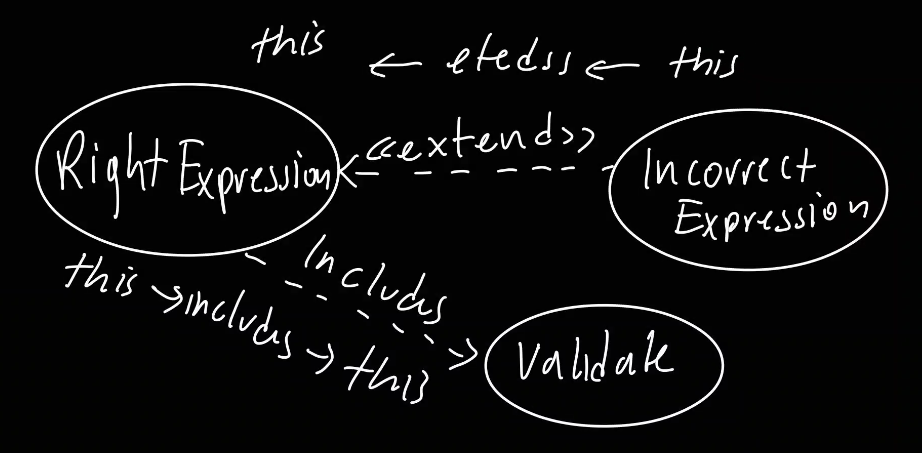 this
← etedss ← this
Right Expression
<<extend>>
Incorrect
Expression
Includs
this → includs → this
Validate